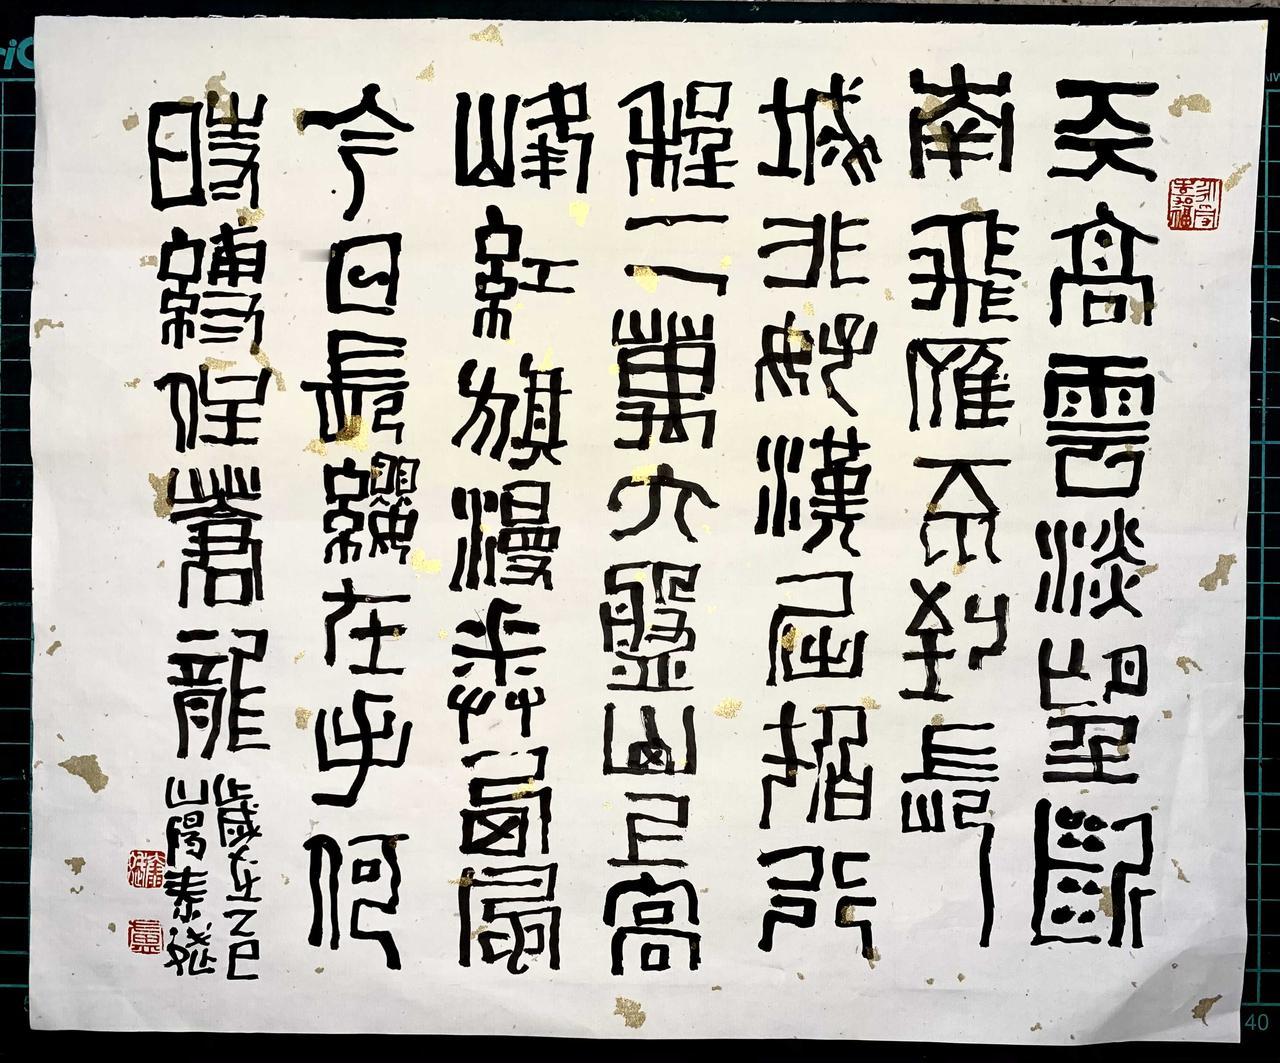 天高雲淡望斷
南飛雁不到長
城非好漢屈指行
程二萬六盤山上高
峰紅旗漫卷西風
今日長纓在手何
時縛住蒼龍
歲在乙巳
山陽
40